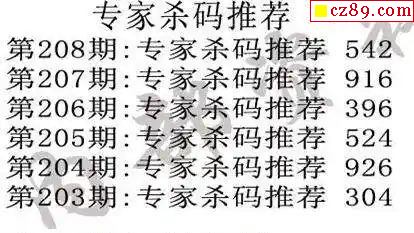 专家杀码推荐
cz89.com
第208期:专家杀码推荐 542
第207期:专家杀码推荐 916
第206期:专家杀码推荐 396
第205期:专家杀码推荐 524
第204期:专家杀码推荐 926
第203期:专家杀码推荐 304